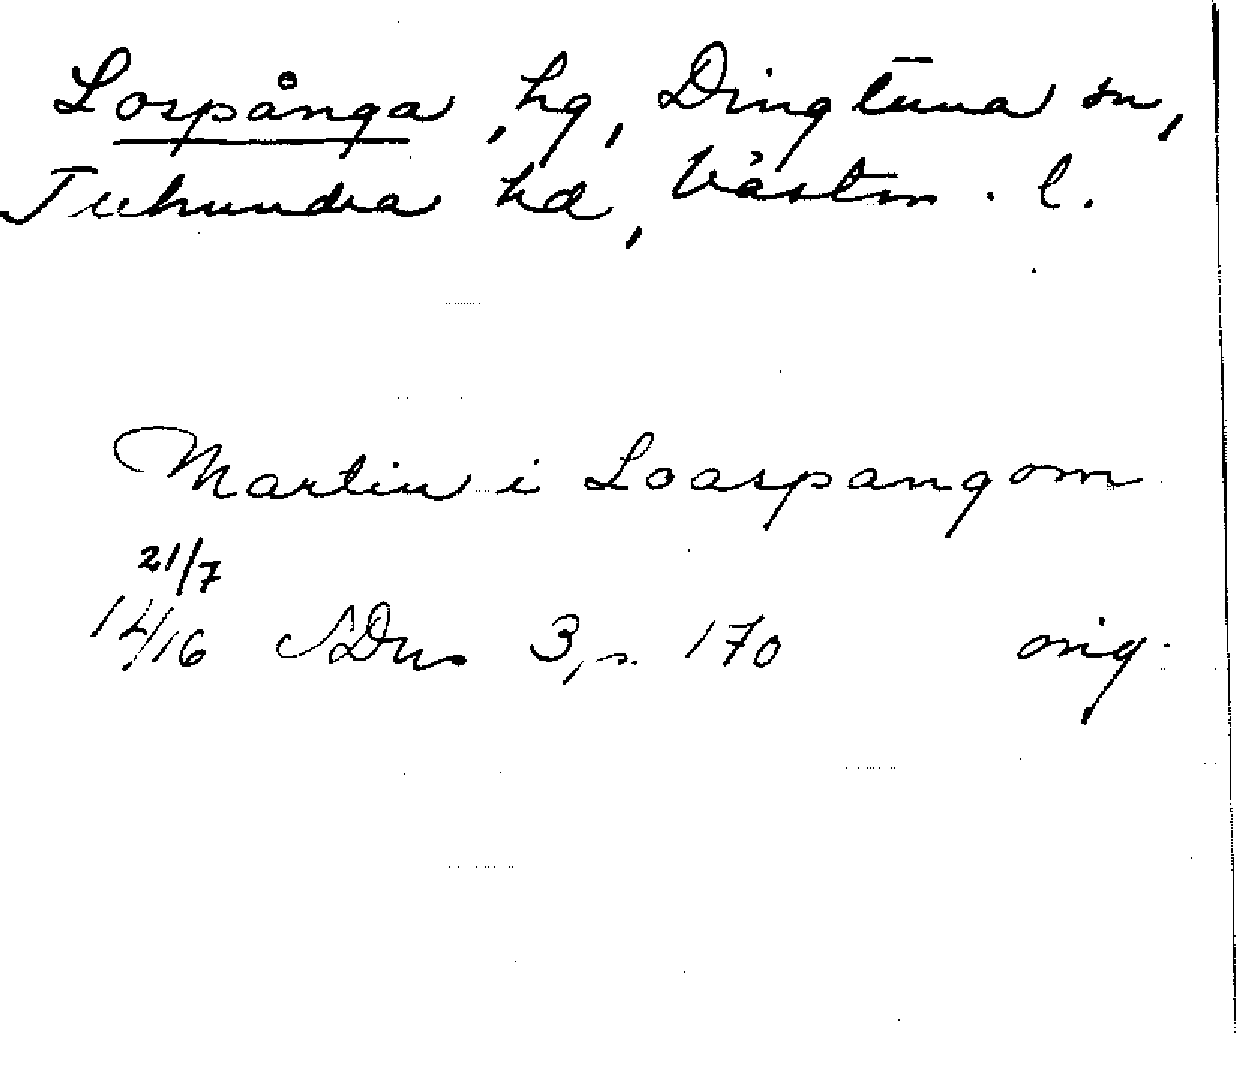 Lospånga, hg, Dingtuna sn,
Tuhundra hd, Västm. l.
Martin i Loaspangom
21/7
14/16 SDns 3, s. 170 orig.